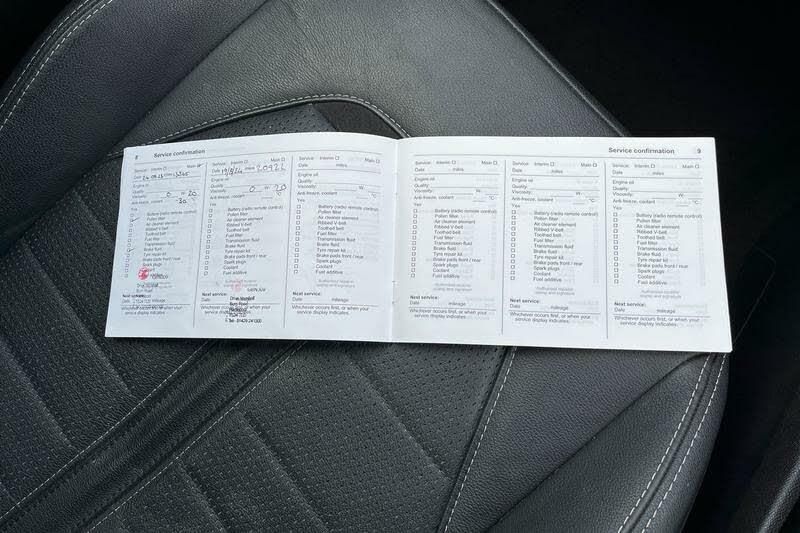 8 Service confirmation
Service: Interim Main
Date 26.09.23 miles
Engine oil
Quality:
Viscosity: 0 W 20
Anti-freeze, coolant -30 °C
Yes
Battery (radio remote control)
Pollen filter
Air cleaner element
Ribbed V-belt
Toothed belt
Fuel filter
Transmission fluid
Brake fluid
Tyre repair kit
Brake pads front / rear
Spark plugs
Coolant
Next service:
Date mileage
Whichever occurs first, or when your
service display indicates.
Service: Interim Main
Date miles 20922
Engine oil
Quality:
Viscosity: 0 W 20
Anti-freeze, coolant °C
Yes
Battery (radio remote control)
Pollen filter
Air cleaner element
Ribbed V-belt
Toothed belt
Fuel filter
Transmission fluid
Brake fluid
Tyre repair kit
Brake pads front / rear
Spark plugs
Coolant
Fuel additive
Drive Vauxhall
Burn Road
Hartlepool
Next service:
Service: Interim Main
Date miles
Engine oil
Quality:
Viscosity: W
Anti-freeze, coolant °C
Yes
Battery (radio remote control)
Pollen filter
Air cleaner element
Ribbed V-belt
Toothed belt
Fuel filter
Transmission fluid
Brake fluid
Tyre repair kit
Brake pads front / rear
Spark plugs
Coolant
Fuel additive
Authorised repairer
stamp and signature
Next service:
Date mileage
Whichever occurs first, or when your
service display indicates.
Service confirmation 9
Service: Interim Main
Date miles
Engine oil
Quality:
Viscosity: W
Anti-freeze, coolant °C
Yes
Battery (radio remote control)
Pollen filter
Air cleaner element
Ribbed V-belt
Toothed belt
Fuel filter
Transmission fluid
Brake fluid
Tyre repair kit
Brake pads front / rear
Spark plugs
Coolant
Fuel additive
Authorised repairer
stamp and signature
Next service:
Date mileage
Whichever occurs first, or when your
service display indicates.
Service: Interim Main
Date miles
Engine oil
Quality:
Viscosity: W
Anti-freeze, coolant °C
Yes
Battery (radio remote control)
Pollen filter
Air cleaner element
Ribbed V-belt
Toothed belt
Fuel filter
Transmission fluid
Brake fluid
Tyre repair kit
Brake pads front / rear
Spark plugs
Coolant
Fuel additive
Authorised repairer
stamp and signature
Next service:
Date mileage
Whichever occurs first, or when your
service display indicates.
Service: Interim Main
Date miles
Engine oil
Quality:
Viscosity: W
Anti-freeze, coolant °C
Yes
Battery (radio remote control)
Pollen filter
Air cleaner element
Ribbed V-belt
Toothed belt
Fuel filter
Transmission fluid
Brake fluid
Tyre repair kit
Brake pads front / rear
Spark plugs
Coolant
Fuel additive
Authorised repairer
stamp and signature
Next service:
Date mileage
Whichever occurs first, or when your
service display indicates.